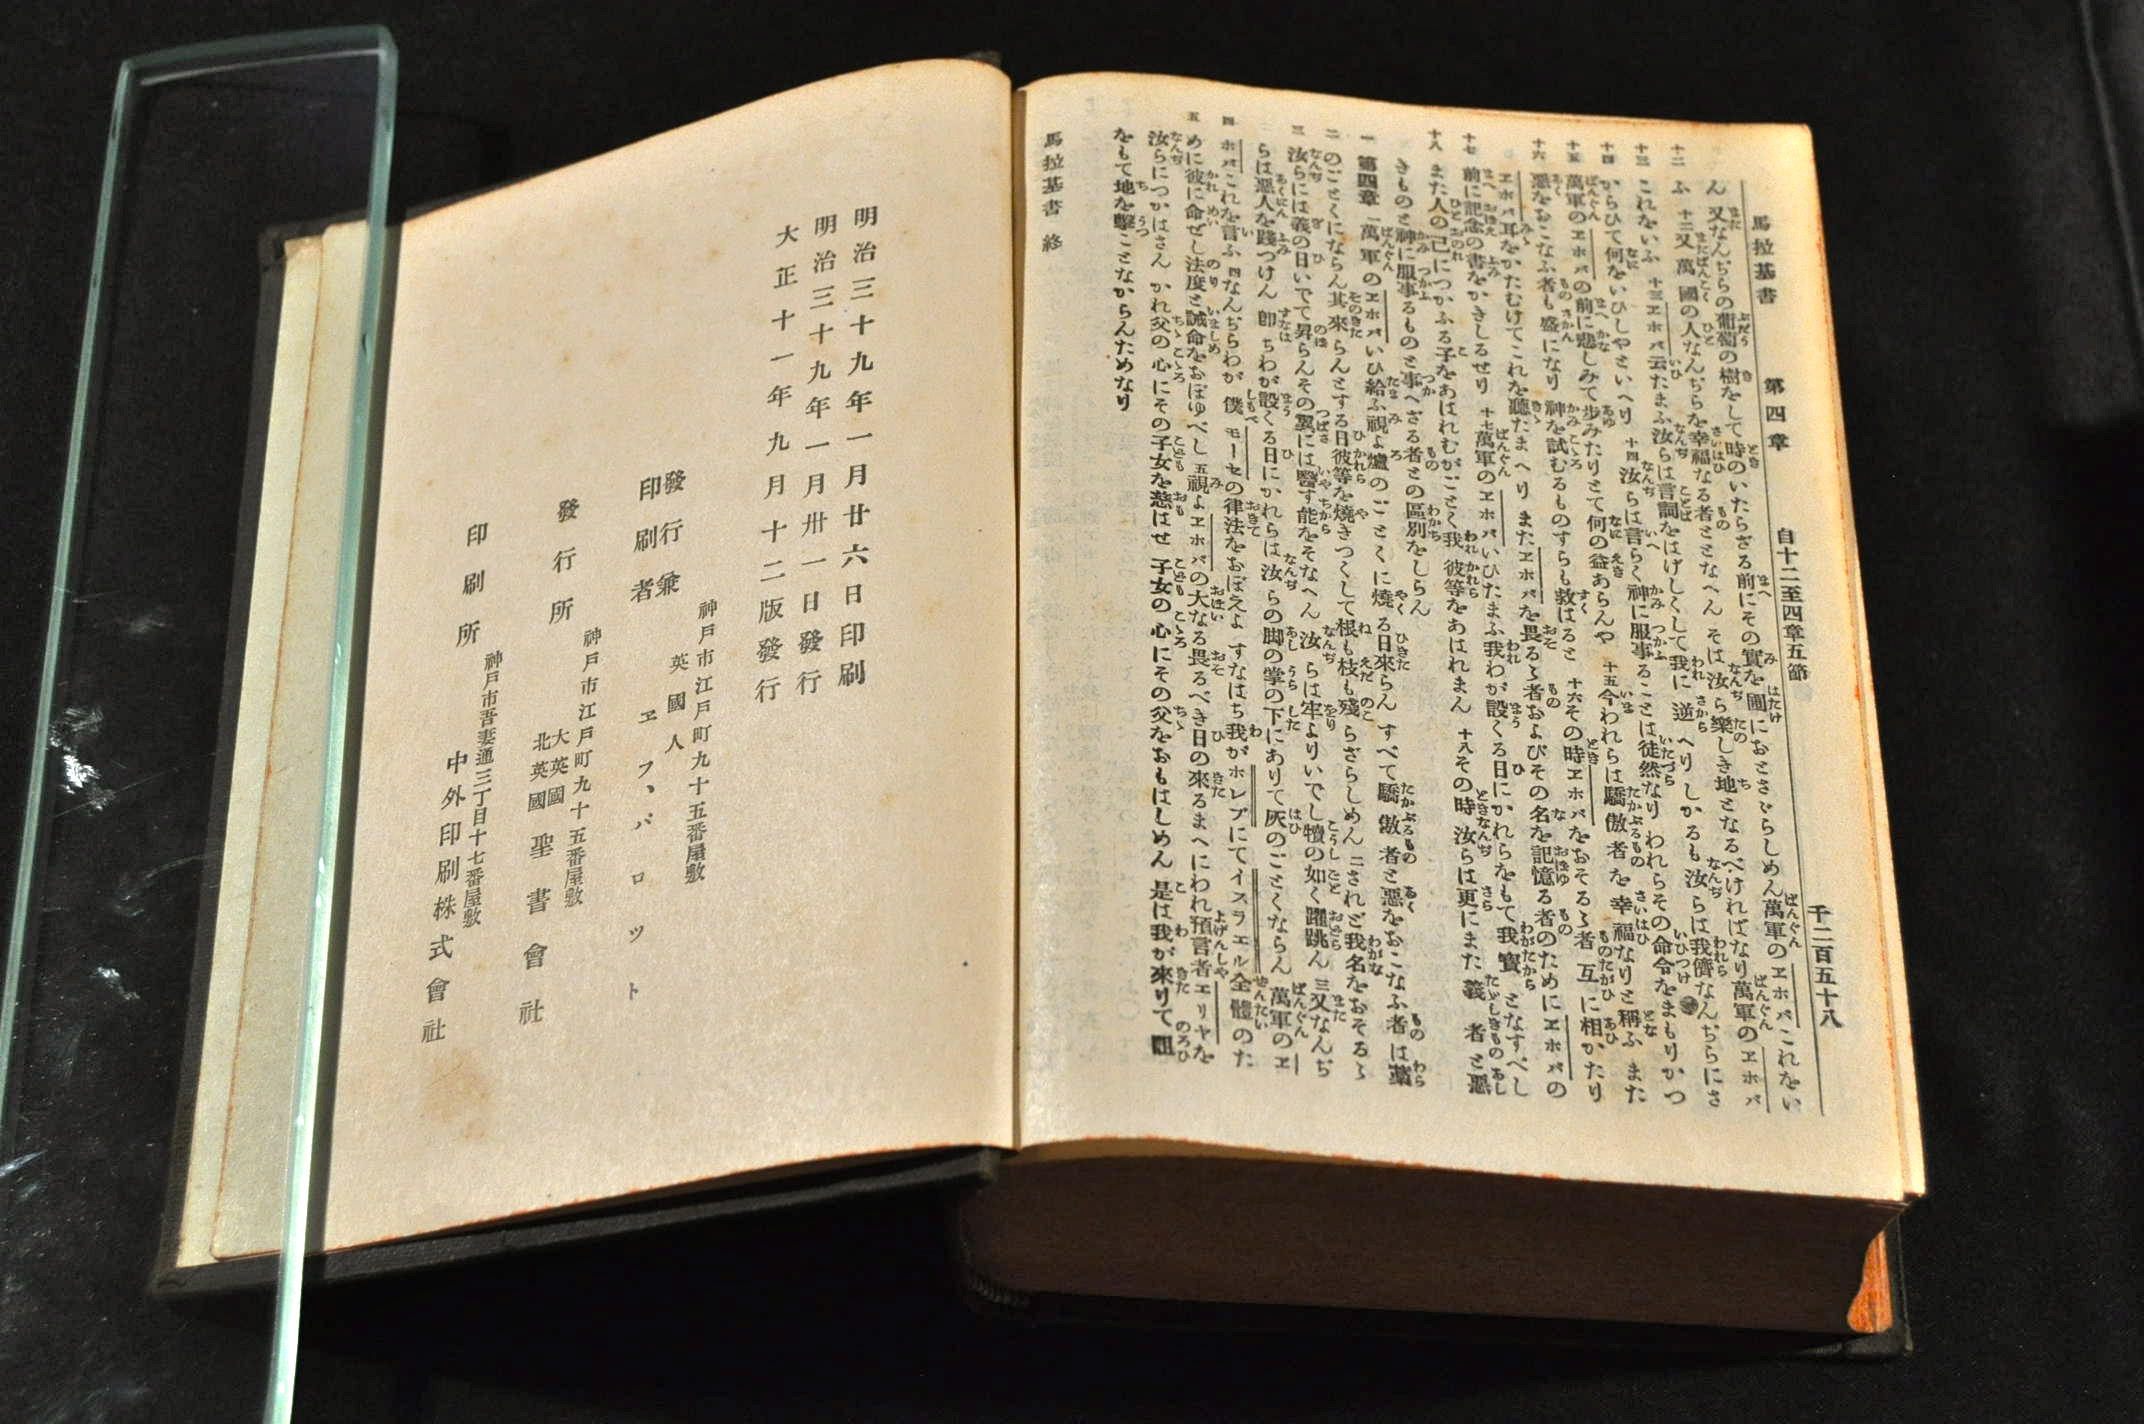 馬拉基書 第四章 自十二至四章五節 千二百五十八
ん 又なんぢらの葡萄の樹をして時のいたらざる前にその實を圃におとさゞらしめん萬軍のヱホバこれをい
十二 ふ 十二又萬國の人なんぢらを幸福なる者ととなへん そは汝ら樂しき地となるべければなり萬軍のヱホバ
十三 これをいふ 十三ヱホバ云たまふ汝らは言詞をはげしくして我に逆へりしかるも汝らは我儕なんぢらにさ
十四 からひて何をいひしやといへり 十四汝らは言らく神に服事ることは徒然なり われらその命令をまもりかつ
十五 萬軍のヱホバの前に悲しみて歩みたりとて何の益あらんや 十五今われらは驕傲者を幸福なりと稱ふ また
十六 惡をおこなふ者も盛になり 神を試むるものすらも救はると 十六その時ヱホバをおそるゝ者互に相かたり
ヱホバ耳をかたむけてこれを聽たまへり またヱホバを畏るゝ者およびその名を記憶る者のためにヱホバの
十七 前に記念の書をかきしるせり 十七萬軍のヱホバいひたまふ我わが設くる日にかれらをもて我寶となすべし
十八 また人の己につかふる子をあはれむがごとく我彼等をあはれまん 十八その時汝らは更にまた義者と惡
きものと神に服事るものと事へざる者との區別をしらん
一 第四章 一萬軍のヱホバいひ給ふ視よ爐のごとくに燒る日來らん すべて驕傲者と惡をおこなふ者は藁
二 のごとくにならん其來らんとする日彼等を燒きつくして根も枝も殘らざらしめん 二されど我名をおそるゝ
三 汝らには義の日いでて昇らんその翼には醫す能をそなへん 汝らは牢よりいでし犢の如く躍跳ん 三又なんぢ
らは惡人を踐つけん 即ちわが設くる日にかれらは汝らの脚の掌の下にありて灰のごとくならん 萬軍のヱ
四 ホバこれを言ふ 四なんぢらわが僕モーセの律法をおぼえよ すなはち我がホレブにてイスラエル全體のた
五 めに彼に命ぜし法度と誡命をおぼゆべし 五視よヱホバの大なる畏るべき日の來るまへにわれ預言者エリヤを
汝らにつかはさん かれ父の心にその子女を慈はせ 子女の心にその父をおもはしめん 是は我が來りて詛
をもて地を撃ことなからんためなり
馬拉基書 終
明治三十九年一月廿六日印刷
明治三十九年一月卅一日發行
大正十一年九月十二版發行
神戸市江戸町九十五番屋敷
英國人
發行兼
印刷者 ヱフ、パロット
神戸市江戸町九十五番屋敷
發行所
大英國
北英國 聖書會社
神戸市吾妻通三丁目十七番屋敷
印刷所 中外印刷株式會社